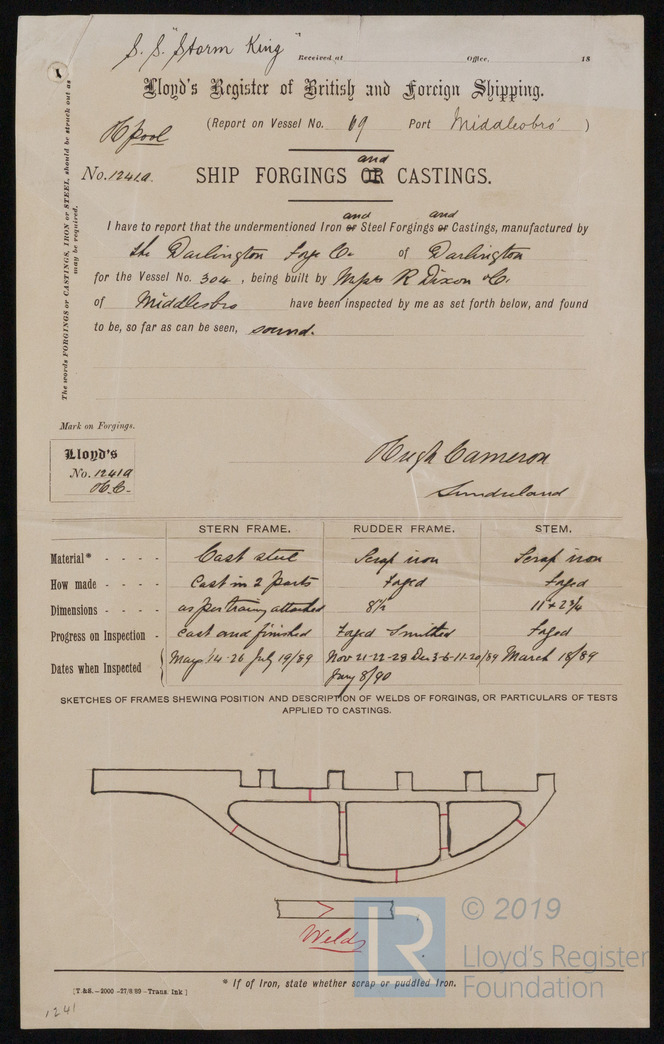 S. S. "Storm King"
Received at Office, 18
Lloyd's Register of British and Foreign Shipping.
Hpool
(Report on Vessel No. 69 Port Middlesbro')
No. 1241a. SHIP FORGINGS OR and CASTINGS.
The words FORGINGS or CASTINGS, IRON or STEEL, should be struck out as may be required.
I have to report that the undermentioned Iron or and Steel Forgings or and Castings, manufactured by
the Darlington Forge Co. of Darlington
for the Vessel No. 304, being built by Messrs R Dixon & Co.
of Middlesbro have been inspected by me as set forth below, and found
to be, so far as can be seen, sound.
Mark on Forgings.
Lloyd's
No. 1241a
H.C.
Hugh Cameron
Sunderland
STERN FRAME. RUDDER FRAME. STEM.
Material* - - - - Cast steel Scrap iron Scrap iron
How made - - - - Cast in 2 parts Forged Forged
Dimensions - - - - as per tracing attached 8½ 11 × 2¾
Progress on Inspection - Cast and finished Forged Smithed Forged
Dates when Inspected May 14 · 26 July 19/89 Nov 21-22-28 Dec 3-6-11-20/89 March 18/89
Jany 8/90
SKETCHES OF FRAMES SHEWING POSITION AND DESCRIPTION OF WELDS OF FORGINGS, OR PARTICULARS OF TESTS
APPLIED TO CASTINGS.
Welds
* If of Iron, state whether scrap or puddled iron.
[T.&S.-2000-27/8/89-Trans. Ink]
1241
LR
© 2019
Lloyd's Register
Foundation